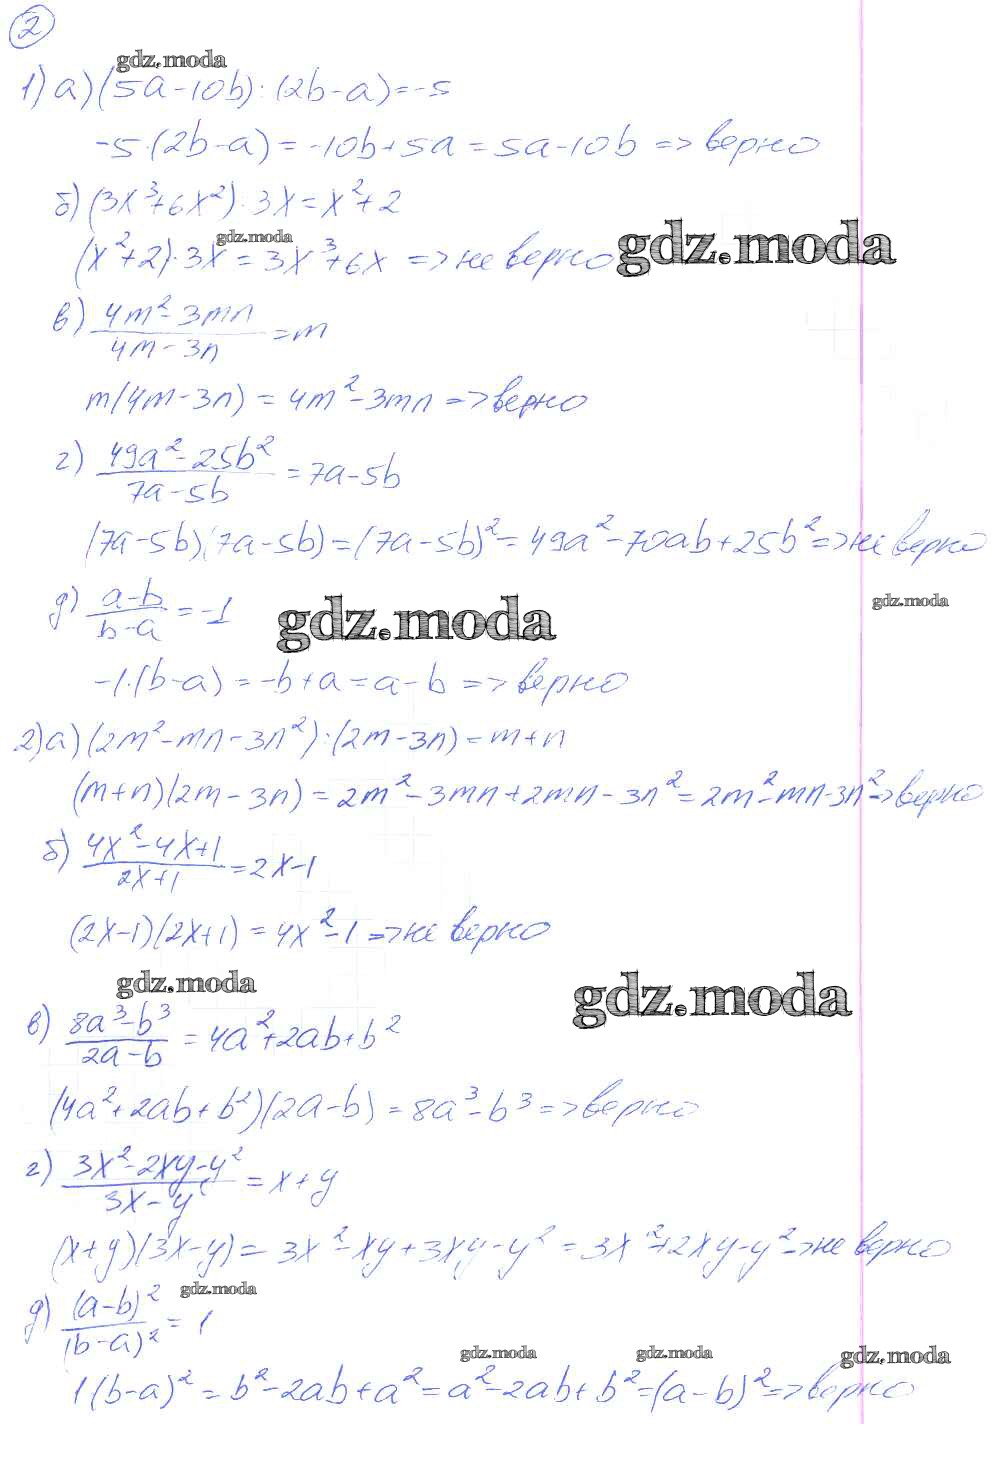 2
gdz.moda
1) а) (5a-10b):(2b-a)=-5
-5·(2b-a)=-10b+5a=5a-10b=>верно
б) (3x³+6x²):3x=x²+2
gdz.moda
gdz.moda
(x²+2)·3x=3x³+6x=>не верно
в) (4m²-3mn)/(4m-3n)=m
m(4m-3n)=4m²-3mn=>верно
г) (49a²-25b²)/(7a-5b)=7a-5b
(7a-5b)(7a-5b)=(7a-5b)²=49a²-70ab+25b²=>не верно
д) (a-b)/(b-a)=-1
gdz.moda
gdz.moda
-1·(b-a)=-b+a=a-b=>верно
2) а) (2m²-mn-3n²):(2m-3n)=m+n
(m+n)(2m-3n)=2m²-3mn+2mn-3n²=2m²-mn-3n²=>верно
б) (4x²-4x+1)/(2x+1)=2x-1
(2x-1)(2x+1)=4x²-1=>не верно
gdz.moda
gdz.moda
в) (8a³-b³)/(2a-b)=4a²+2ab+b²
(4a²+2ab+b²)(2a-b)=8a³-b³=>верно
г) (3x²-2xy-y²)/(3x-y)=x+y
(x+y)(3x-y)=3x²-xy+3xy-y²=3x²+2xy-y²=>не верно
gdz.moda
д) (a-b)²/(b-a)²=1
gdz.moda
gdz.moda
gdz.moda
1(b-a)²=b²-2ab+a²=a²-2ab+b²=(a-b)²=>верно